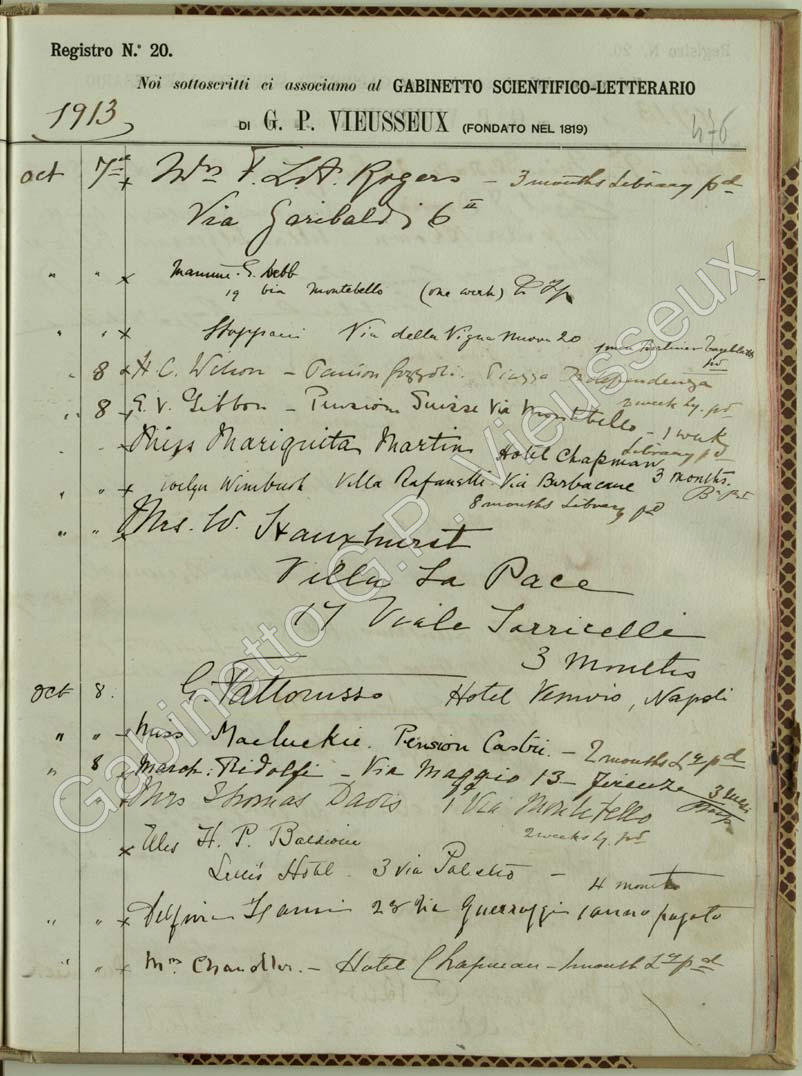 Registro N.° 20.
Noi sottoscritti ci associamo al GABINETTO SCIENTIFICO-LETTERARIO
DI G. P. VIEUSSEUX (FONDATO NEL 1819)
1913
476
Oct 7 x Mrs F. L. A. Rogers – 3 months Library pd
Via Garibaldi 6 II
" " x G. Webb
19 via Montebello (one week)
" " x Stoppani Via della Vigna Nuova 20
Berliner Tageblatt pd
" 8 x H C. Wilson – Pension Piazza Independenza
2 week Ly. pd
" 8 E. V. Gibbon – Pension Suisse Via Montebello – 1 week
Library pd
" " Miss Mariquita Martin Hotel Chapman 3 months.
" " x Evelyn Wimbush Villa Rafanelli Via Barbacane
8 months Library pd
" " x Mrs. W. Hauxhurst
Villa La Pace
17 Viale Torricelli
3 months
Oct 8. G. Pattorusso Hotel Vesuvio, Napoli
" " Miss Macluckie. Pension Castri – 2 months Ly pd
" 8 March: Ridolfi – Via Maggio 13 – Firenze 3
" " Mrs Thomas Davis 1 Via Montebello
2 weeks Ly. pd
x H. P.
Hotel 3 via Palestro –
4 months
" " x 28 Via Guerrazzi 1 anno pagato
" " x Mrs Chandler. – Hotel Chapman – 1 month Ly pd
Gabinetto G.P. Vieusseux